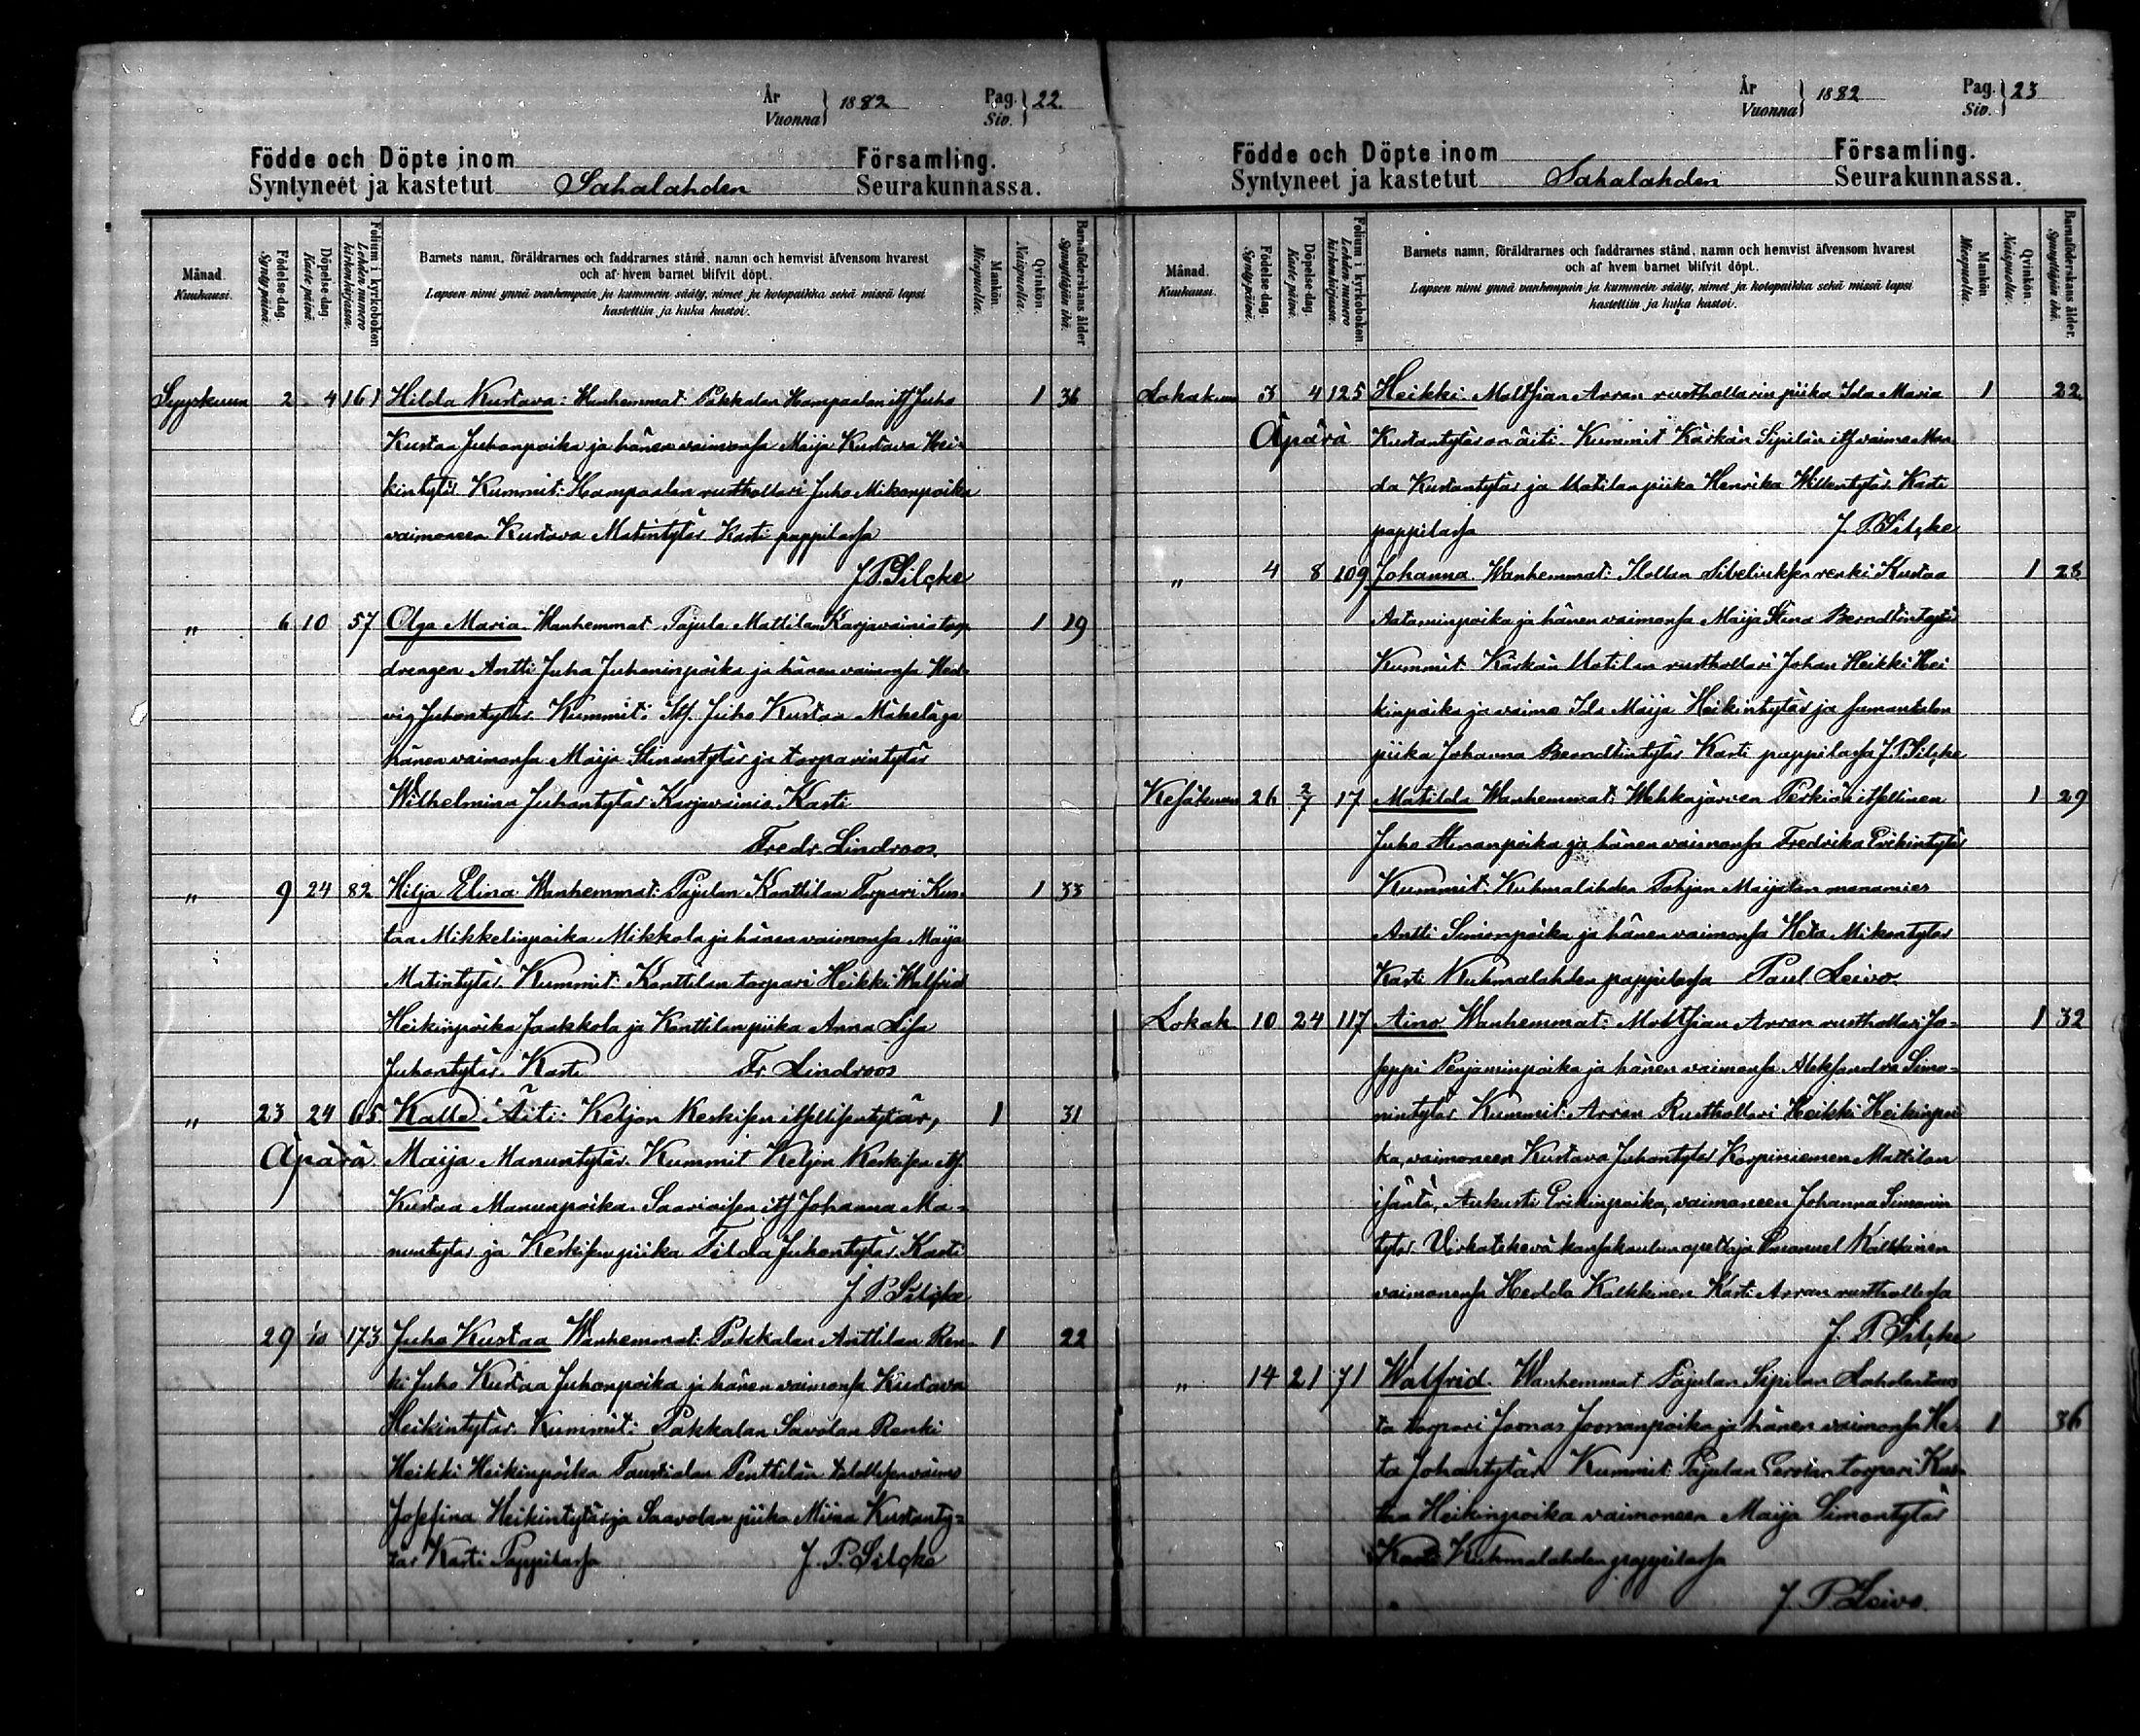 År
Vuonna } 1882
Pag.
Siv. } 22.
Födde och Döpte inom
Församling.
Syntyneet ja kastetut Sahalahden Seurakunnassa.
Månad.
Kuukausi.
Födelse-dag.
Synty päivä.
Döpelse-dag.
Kaste päivä.
Folium i kyrkoboken.
Lehden numero kirkonkirjassa.
Barnets namn, föräldrarnes och faddrarnes stånd, namn och hemvist äfvensom hvarest
och af hvem barnet blifvit döpt.
Lapsen nimi ynnä vanhempain ja kummein sääty, nimet ja kotopaikka sekä missä lapsi
kastettiin ja kuka kastoi.
Mankön.
Miespuolta.
Qvinkön.
Naispuolta.
Barnaföderskans ålder.
Synnyttäjän ikä.
Syyskuun 2 4 161 Hilda Kustava: Wanhemmat Pakkalan Hampaalan itf Juho 1 36
Kustaa Juhonpoika ja hänen vaimonsa Maija Kustava Hei-
kintytär Kummit: Hampaalan rusthollari Juho Mikonpoika
vaimoneen Kustava Matintytär Kasti pappilassa
J. P. Silcke
" 6 10 57 Olga Maria Wanhemmat Pajula Mattilan Karjavainia torp 1 29
drengen Antti Juha Juhaninpoika ja hänen vaimonsa Hed-
vig Juhontytär. Kummit: Juho Kustaa Mäkelä ja
hänen vaimonsa Maija Stinantytär ja torparintytär
Wilhelmina Juhontytär Karjavainia. Kasti
Fredr. Lindroos.
" 9 24 82 Hilja Elina Wanhemmat: Pajulan Konttilan Torpari Kus-
1 33
taa Mikkelinpoika Mikkola ja hänen vaimonsa Maija
Matintytär. Kummit: Konttilan torpari Heikki Walfrid
Heikinpoika Jaakkola ja Konttilan piika Anna Lisa
Juhontytär. Kasti Fr Lindroos
" 23 24 65. Kalle Äiti: Keljon Keskisen itsellisentytär, 1 31
Äpärä Maija Manuntytär. Kummit Keljon Keskisen itf.
Kustaa Manunpoika. Saarioisen itf Johanna Ma-
nuntytär ja Keskisen piika Tilda Juhontytär. Kasti
J. P. Silcke
29 1/10 173 Juho Kustaa Wanhemmat: Pakkalan Anttilan Ren- 1 22
ki Juho Kustaa Juhonpoika ja hänen vaimonsa Kustava
Heikintytär. Kummit: Pakkalan Savolan Renki
Heikki Heikinpoika Taustialan Penttilän talollisen vaimo
Josefina Heikintytär ja Saavolan piika Miina Kustanty-
tär Kasti Pappilassa J. P. Silcke
År
Vuonna } 1882
Pag.
Siv. } 23
Födde och Döpte inom
Församling.
Syntyneet ja kastetut Sahalahden Seurakunnassa.
Månad.
Kuukausi.
Födelse-dag.
Synty päivä.
Döpelse-dag.
Kaste päivä.
Folium i kyrkoboken.
Lehden numero kirkonkirjassa.
Barnets namn, föräldrarnes och faddrarnes stånd, namn och hemvist äfvensom hvarest
och af hvem barnet blifvit döpt.
Lapsen nimi ynnä vanhempain ja kummein sääty, nimet ja kotopaikka sekä missä lapsi
kastettiin ja kuka kastoi.
Mankön
Miespuolta.
Qvinkön.
Naispuolta.
Barnaföderskans ålder.
Synnyttäjän ikä.
Lokakuun 3 4 125 Heikki. Moltsian Arran rusthollarin piika Ida Maria 1 22
Äpärä Kustantytär on äiti. Kummit Kärkän Sipilän itf vaimo Man
da Kustantytär ja Uotilan piika Henrika Willentytär. Kasti
pappilassa J. P. Silcke
" 4 8 109 Johanna Wanhemmat: Isollan Sibeliuksen renki Kustaa 1 28
Aataminpoika ja hänen vaimonsa Maija Stina Berndtintytär
Kummit. Kärkän Uotilan rusthollari Johan Heikki Hei
kinpoika ja vaimo Ida Maija Heikintytär ja saman talon
piika Johanna Berndtintytär Kasti pappilassa J. P. Silcke
Kesäkuun 26 2/7 17 Matilda Wanhemmat: Wehkajärven Perkiön itsellinen 1 29
Juho Stinanpoika ja hänen vaimonsa Fredrika Erikintytär
Kummit: Kuhmalahden Pohjan Maijalan
Antti Simonpoika ja hänen vaimonsa Heta Mikontytär
Kasti Kuhmalahden pappilassa Paul Leivo.
Lokak 10 24 117 Aino Wanhemmat: Moltsian Arran rusthollari Jo- 1 32
seppi Penjaminpoika ja hänen vaimonsa Aleksandra Simo-
nintytär Kummit: Arran Rusthollari Heikki Heikinpoi
ka, vaimoneen Kustava Juhontytär Korpiniemen Mattilan
isäntä, Aukusti Erikinpoika, vaimoneen Johanna Simonin
tytär. Virkatekevä kansakoulunopettaja Emanuel Kalkkinen
vaimonensa Hedda Kalkkinen Kasti Arran rusthollissa
J. P. Silcke
" 14 21 71 Walfrid. Wanhemmat Pajulan Sipilän Laholantaus
ta torpari Joonas Joonanpoika ja hänen vaimonsa He- 1 36
ta Johantytär Kummit: Pajulan Eerolan torpari Kus-
taa Heikinpoika vaimoneen Maija Simontytär
Kasti Kuhmalahden pappilassa
J. P. Leivo.